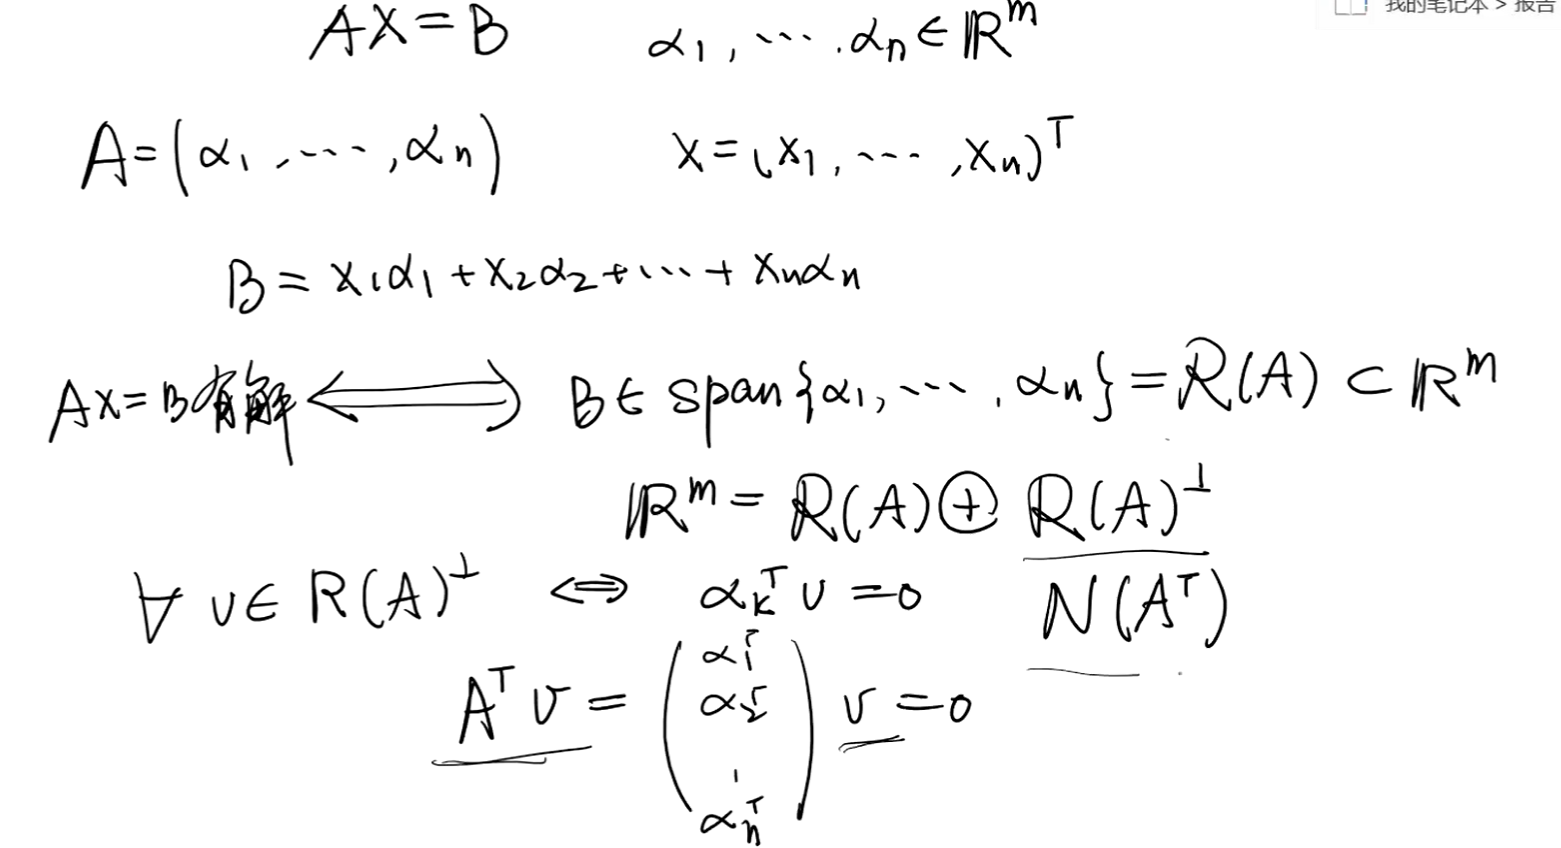 我的笔记本 > 报告
AX=B α₁, ⋯, αₙ∈ℝᵐ
A=(α₁, ⋯, αₙ) X=(x₁, ⋯, xₙ)ᵀ
B = x₁α₁+x₂α₂+⋯+xₙαₙ
AX=B有解 ⟺ B∈span{α₁, ⋯, αₙ}=R(A)⊂ℝᵐ
ℝᵐ=R(A)⊕R(A)^⊥
∀ v∈R(A)^⊥ ⇔ α_kᵀv=0 N(Aᵀ)
Aᵀv=(α₁ᵀ α₂ᵀ ⋮ αₙᵀ)v=0